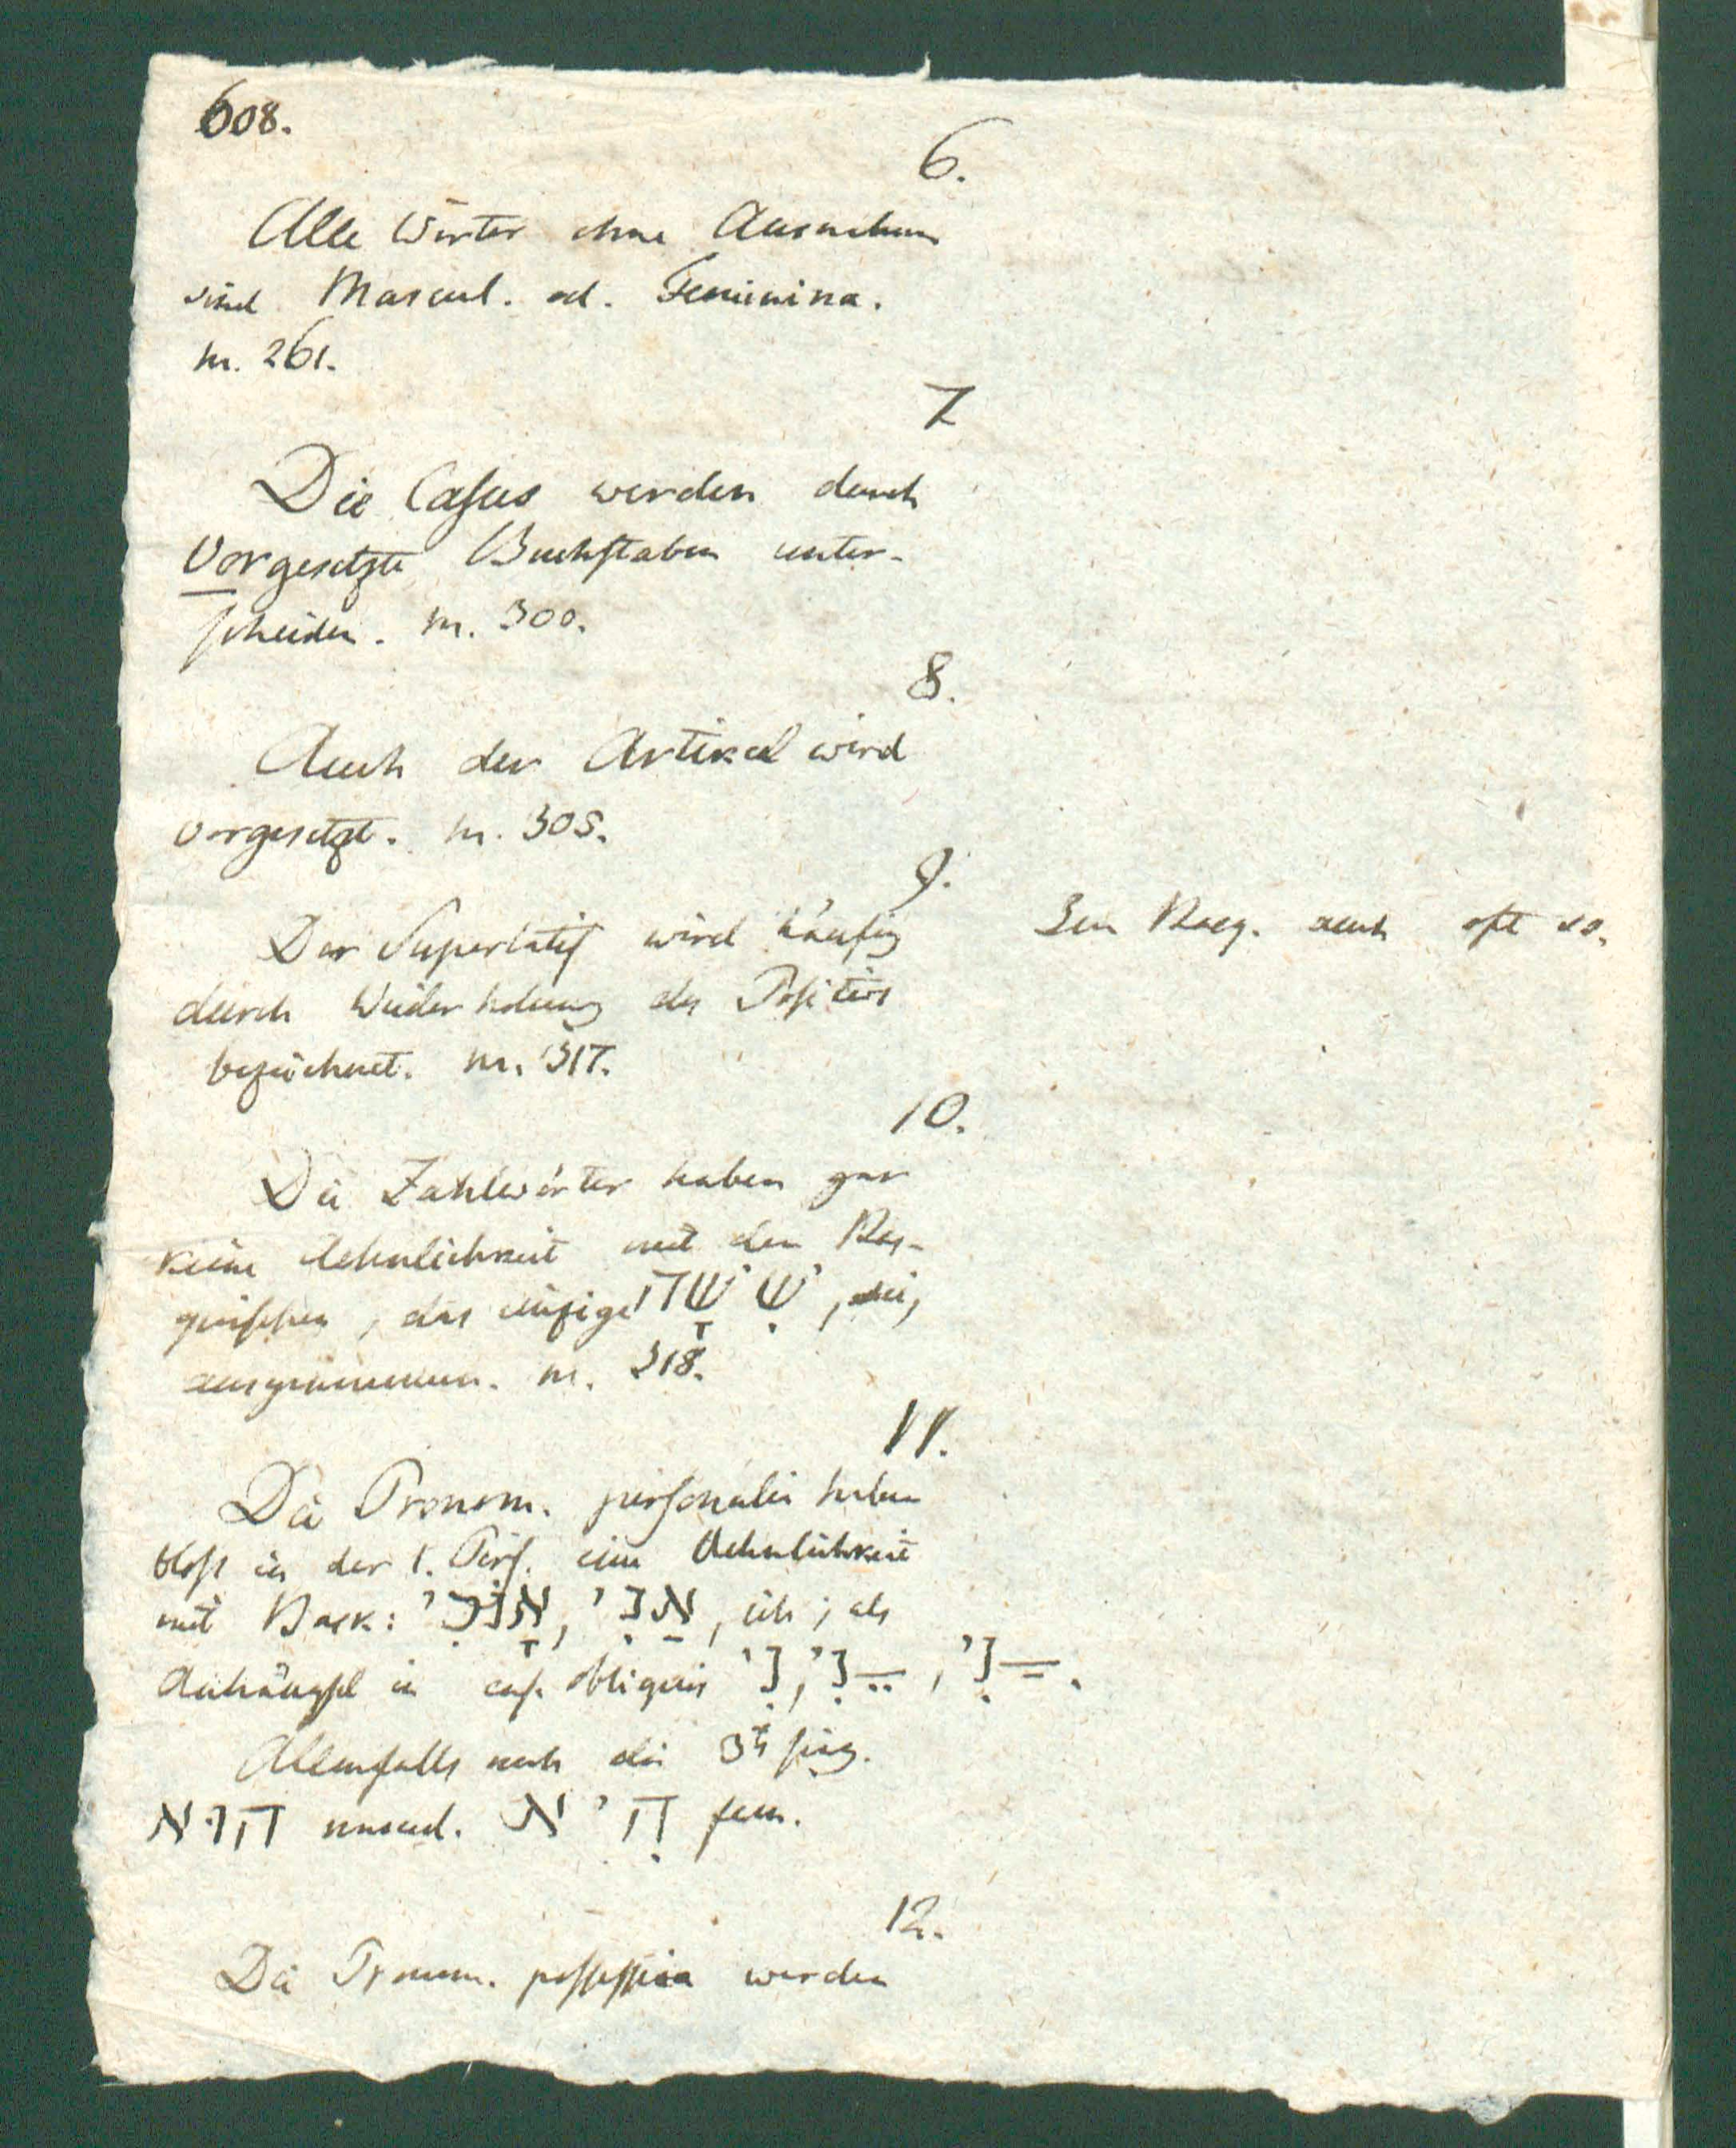 608.
6.
Alle Wörter ohne Ausnahme
sind Mascul. od. Feminina.
nr. 261.
7
Die Casus werden durch
Vorgesetzte Buchstaben unter-
scheiden. nr. 300.
8.
Auch der Artikel wird
vorgesetzt. nr. 305.
9.
Der Superlatif wird häufig
durch Wiederholung des Positivs
bezeichnet. nr. 317.
Im Vasq. auch oft so.
10.
Die Zahlwörter haben gar
keine Aehnlichkeit mit den Vas-
quischen, das einzige שִׁשָׁה,
ausgenommen. nr. 318.
11.
Die Pronom. personalia haben
bloss in der 1. Pers. eine Aehnlichkeit
mit Vask: אָנֹכִי, אֲנִי, ich; als
Anhängsel in cas. obliquis נִי, ־ֵנִי, ־ַנִי.
Allenfalls noch die 3te sing.
הוּא mascul. הִיא fem.
12.
Die Pronom. possessiva werden